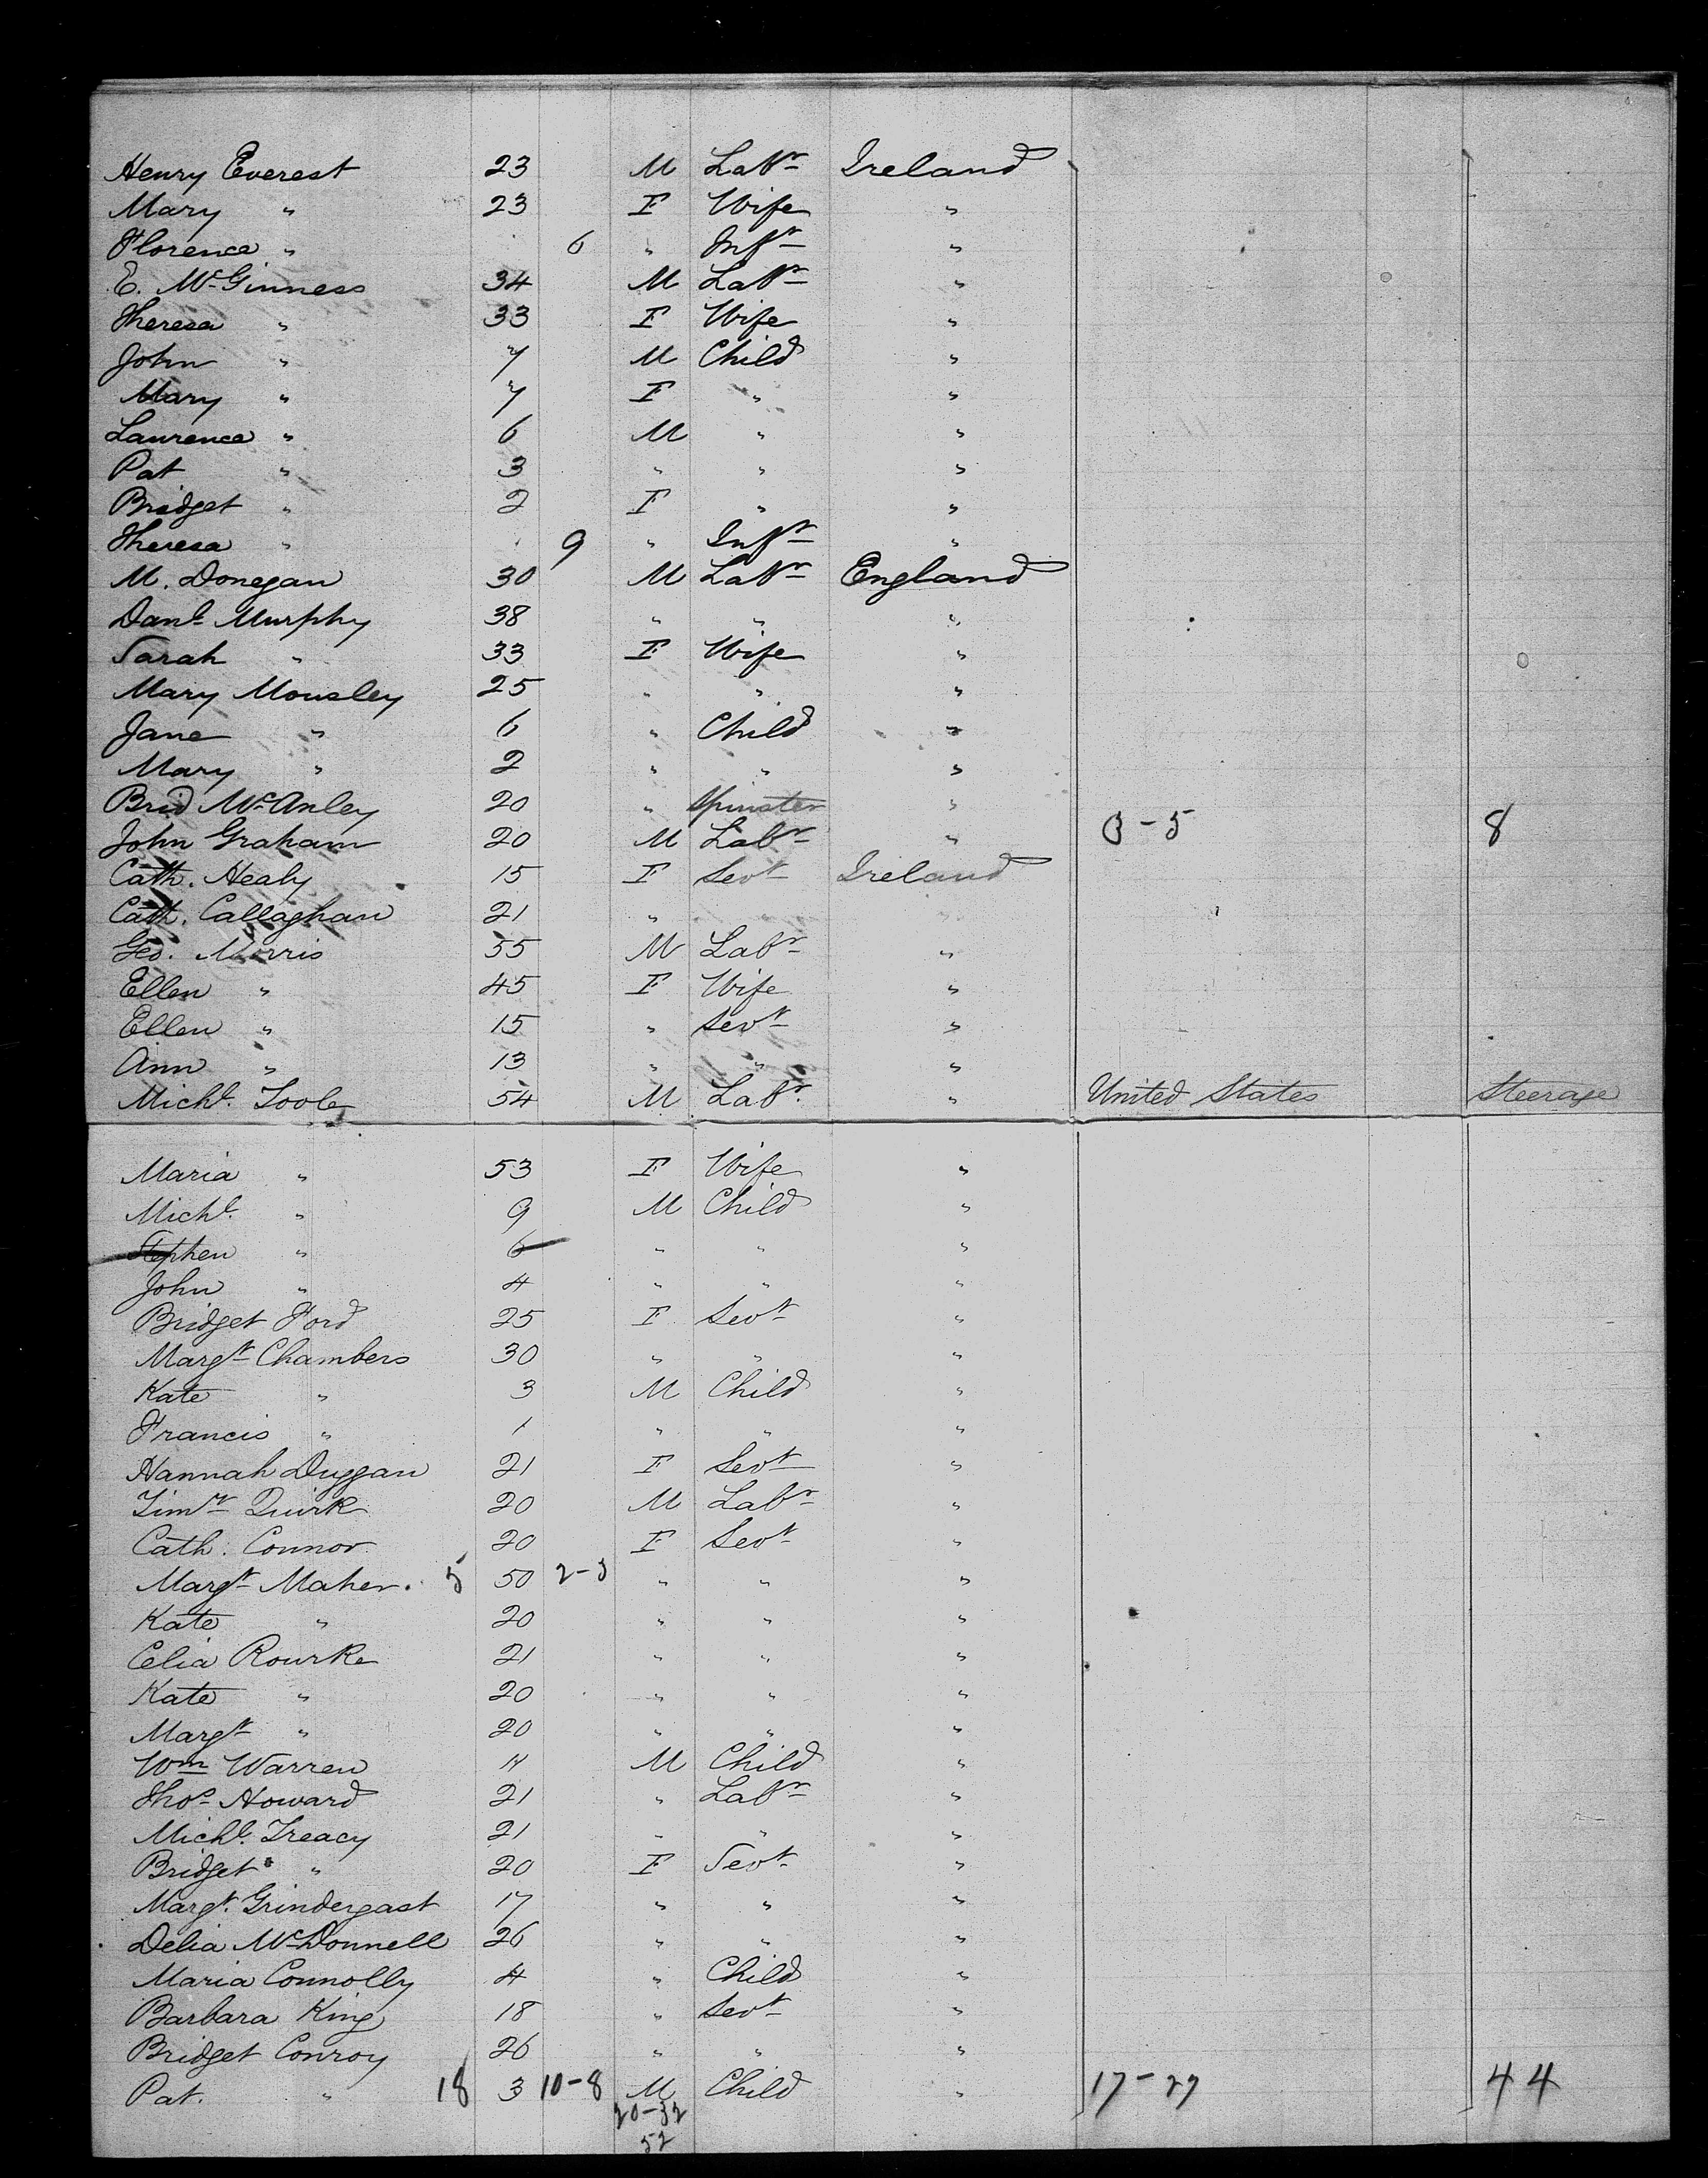 Henry Everest 23 M Labr Ireland
Mary " 23 F Wife "
Florence " 6 " Inft "
E. McGinness 34 M Labr "
Theresa " 33 F Wife "
John " 7 M Child "
Mary " 7 F " "
Laurence " 6 M " "
Pat " 3 " " "
Bridget " 2 F " "
Theresa " 9 " Inft "
M. Donegan 30 M Labr England
Danl Murphy 38 " " "
Sarah " 33 F Wife "
Mary Mousley 25 " " "
Jane " 6 " Child "
Mary " 2 " " "
Brid McAnley 20 " Spinster "
John Graham 20 M Labr " 3-5 8
Cath. Healy 15 F Sevt Ireland
Cath. Callaghan 21 "
Geo. Morris 55 M Labr "
Ellen " 45 F Wife "
Ellen " 15 " Sevt "
Ann " 13 " " "
Michl. Toole 54 M Labr. " United States Steerage
Maria " 53 F Wife "
Michl. " 9 M Child "
Stephen " 6 " " "
John " 4 " " "
Bridget Ford 25 F Sevt "
Margt Chambers 30 " " "
Kate " 3 M Child "
Francis " 1 " " "
Hannah Duggan 21 F Sevt "
Timy Quirk 20 M Labr "
Cath. Connor 20 F Sevt "
Margt Maher. 5 50 2-3 " " "
Kate " 20 " " "
Celia Rourke 21 " " "
Kate " 20 " " "
Margt " 20 " " "
Wm Warren 11 M Child "
Thos Howard 21 " Labr "
Michl. Treacy 21 " " "
Bridget " 20 F Sevt "
Margt. Grindergast 17 " " "
Delia McDonnell 26 " " "
Maria Connolly 4 " Child "
Barbara King 18 " Sevt "
Bridget Conroy 26 " " "
Pat. " 18 3 10-8 M Child " 17-27 44
20-32
52